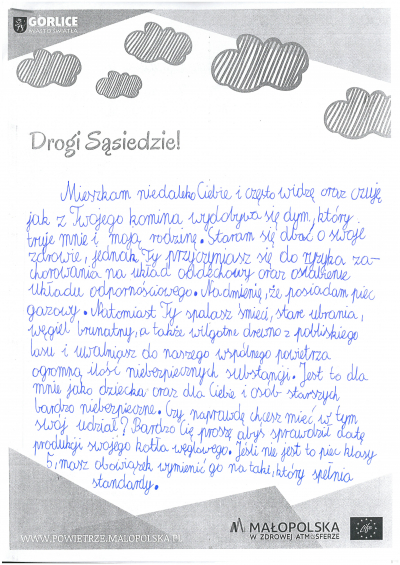 GORLICE
MIASTO ŚWIATŁA
Drogi Sąsiedzie!
Mieszkam niedaleko Ciebie i często widzę oraz czuję
jak z Twojego komina wydobywa się dym, który
truje mnie i moją rodzinę. Staram się dbać o swoje
zdrowie, jednak Ty przyczyniasz się do ryzyka za-
chorowania na układ oddechowy oraz osłabienie
układu odpornościowego. Nadmienię, że posiadam piec
gazowy. Natomiast Ty spalasz śmieci, stare ubrania,
węgiel brunatny, a także wilgotne drewno z pobliskiego
lasu i uwalniasz do naszego wspólnego powietrza
ogromną ilość niebezpiecznych substancji. Jest to dla
mnie jako dziecka oraz dla Ciebie i osób starszych
bardzo niebezpieczne. Czy naprawdę chcesz mieć w tym
swój udział? Bardzo Cię proszę abyś sprawdził datę
produkcji swojego kotła węglowego. Jeśli nie jest to piec klasy
5, masz obowiązek wymienić go na taki, który spełnia
standardy.
WWW.POWIETRZE.MALOPOLSKA.PL
MAŁOPOLSKA
W ZDROWEJ ATMOSFERZE